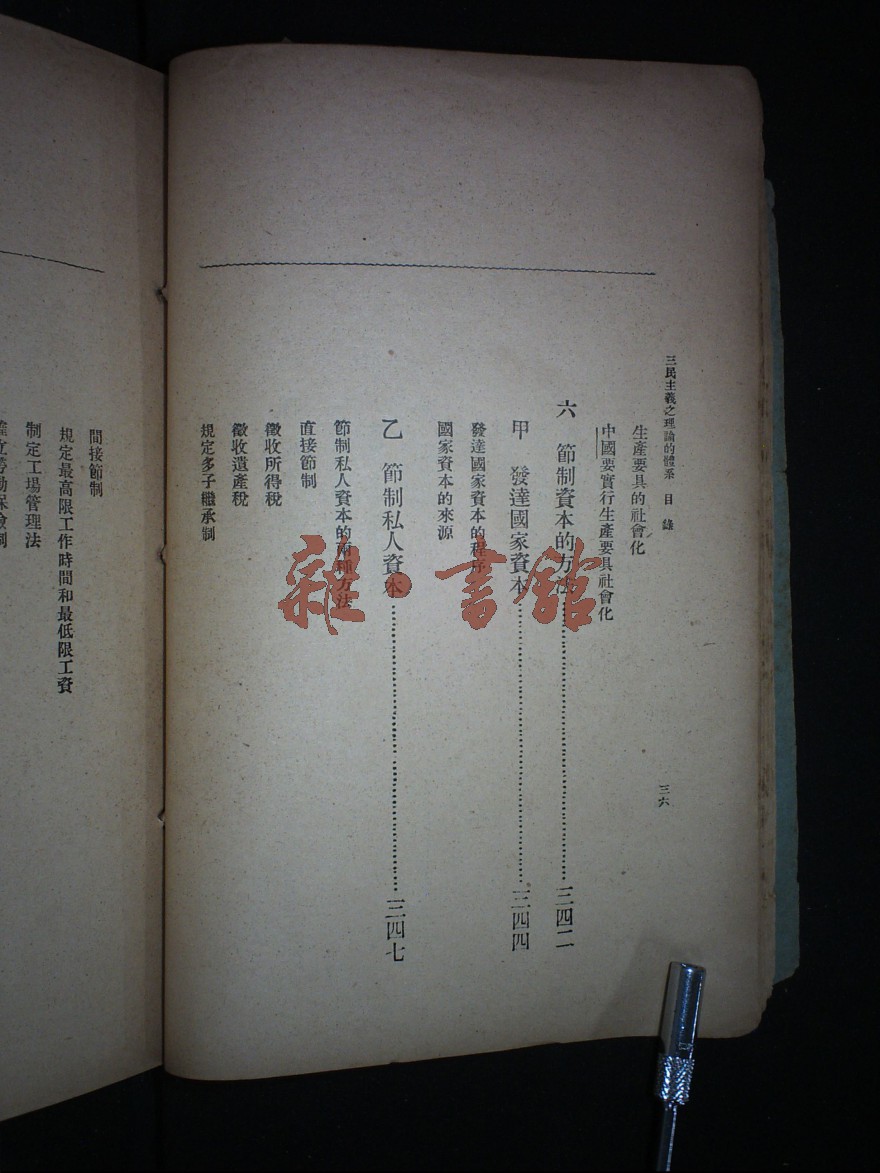 三民主義之理論的體系 目錄
三六
生產要具的社會化
中國要實行生產要具社會化
六 節制資本的方法…………三四二
甲 發達國家資本…………三四四
發達國家資本的程序
國家資本的來源
乙 節制私人資本…………三四七
節制私人資本的兩種方法
直接節制
徵收所得稅
徵收遺產稅
規定多子繼承制
間接節制
規定最高限工作時間和最低限工資
制定工場管理法
雜·書館